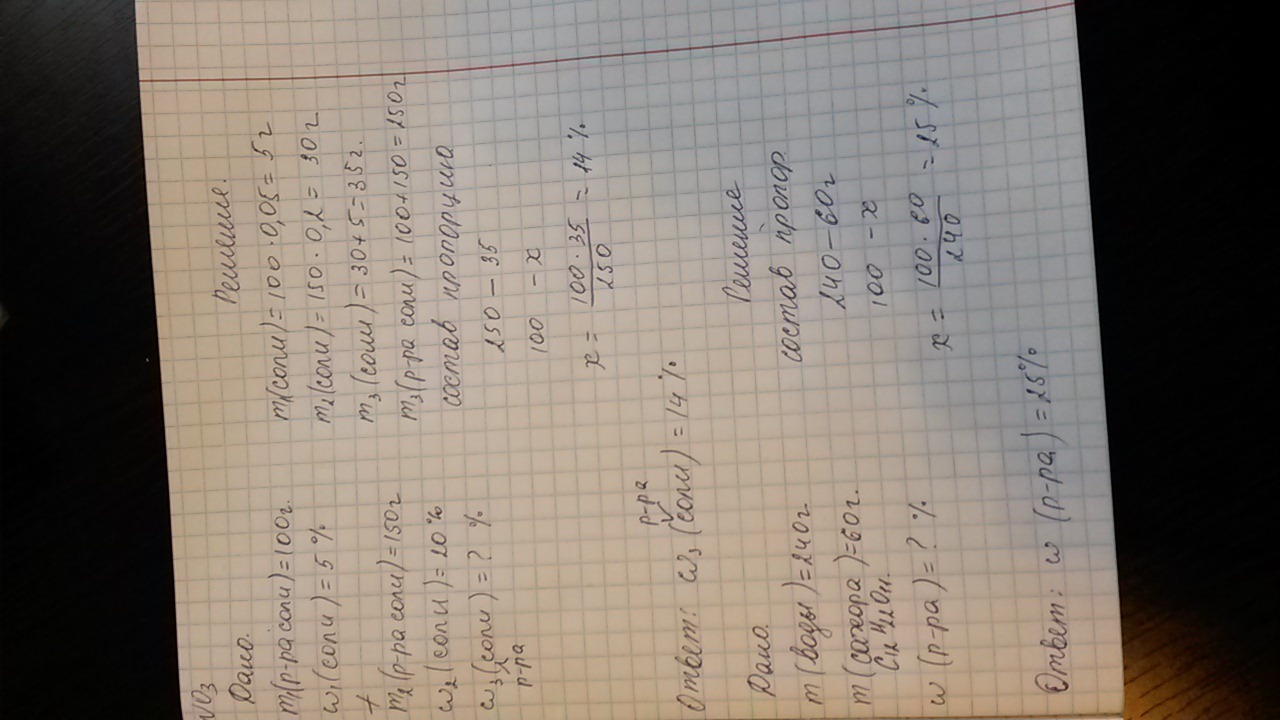 Дано.
m₁(р-ра соли)=100г.
ω₁(соли)=5%
+
m₂(р-ра соли)=150г
ω₂(соли)=20%
ω₃(соли)=? %
р-ра
Решение.
m₁(соли)=100·0,05=5г
m₂(соли)=150·0,2=30г
m₃(соли)=30+5=35г.
m₃(р-ра соли)=100+150=250г
состав пропорцию
250-35
100-x
x=100·35/250=14%
р-ра
Ответ: ω₃(соли)=14%
Дано.
m(воды)=240г
m(сахора)=60г.
C₁₂H₂₂O₁₁.
ω(р-ра)=? %
Решение
состав пропор.
240-60г
100-x
x=100·60/240=25%
Ответ: ω(р-ра)=25%